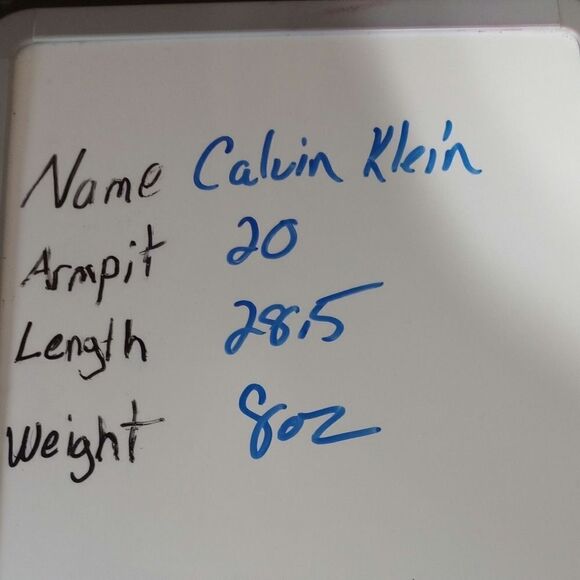 Name Calvin Klein
Armpit 20
Length 28.5
Weight 8oz